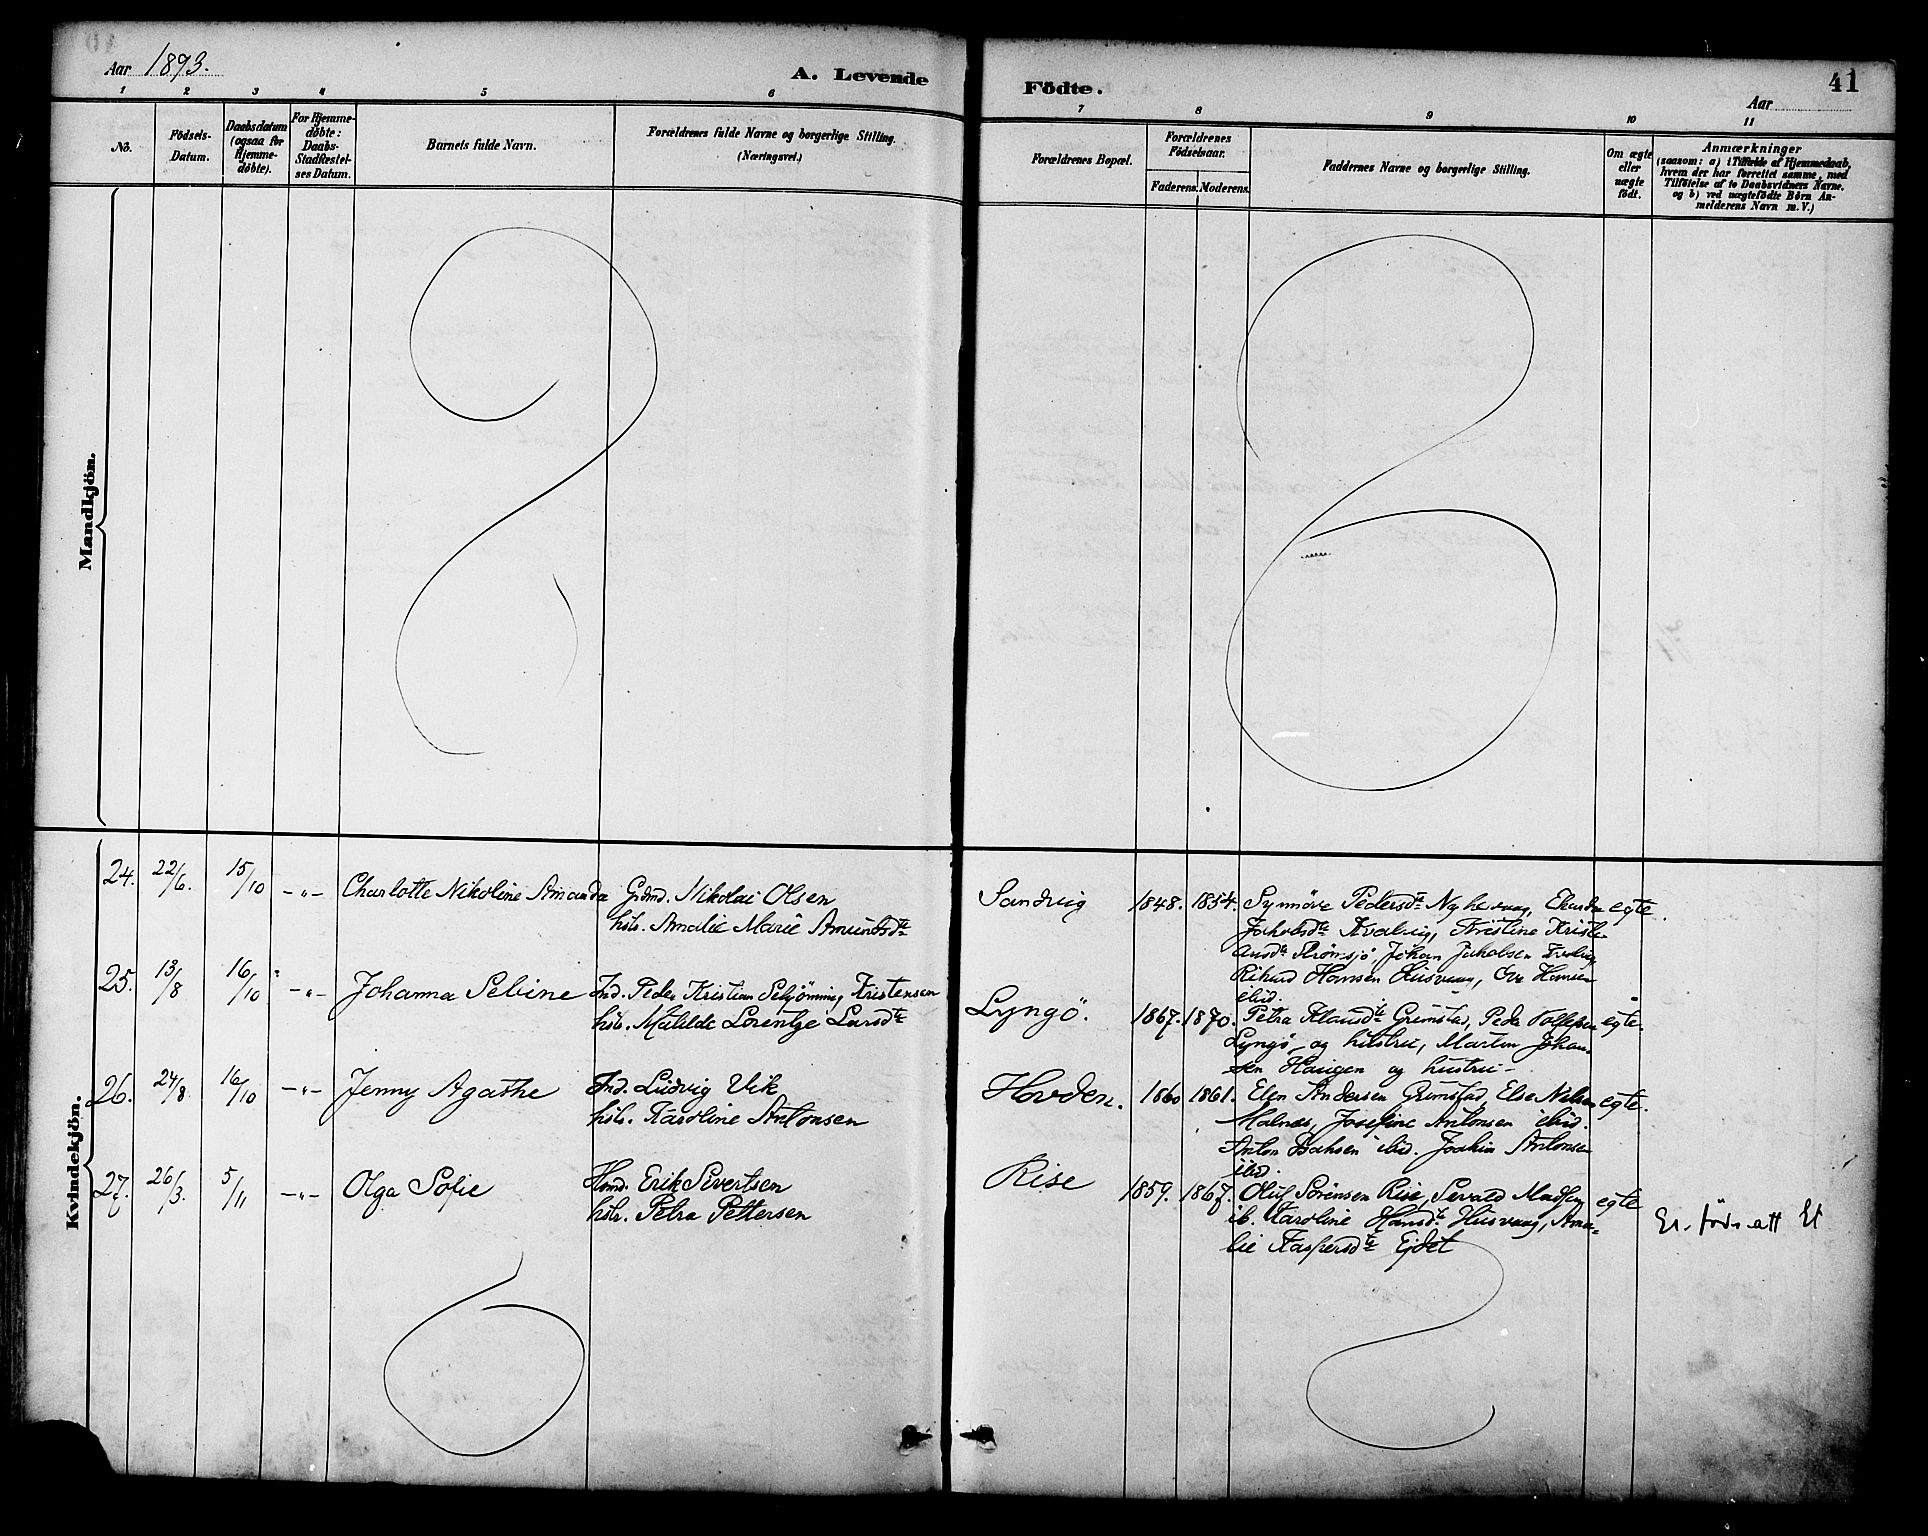 Aar 1893.
A. Levende
Födte.
41
Aar
1 2 3 4 5 6 7 8 9 10 11
No.
Födsels-Datum.
Daabsdatum (ogsaa for Hjemme-döbte).
For Hjemme-döbte: Daabs-Stadfæstel-ses Datum.
Barnets fulde Navn.
Forældrenes fulde Navne og borgerlige Stilling. (Næringsvei.)
Forældrenes Bopæl.
Forældrenes Födselsaar.
Faderens. Moderens.
Faddernes Navne og borgerlige Stilling.
Om ægte eller uægte födt.
Anmærkninger
(saasom: a) i Tilfælde af Hjemmedaab, hvem der har forrettet samme, med Tilföielse af to Daabsvidners Navne, og b) ved uægtefödte Börn An-melderens Navn m. V.)
Mandkjön.
Kvindekjön.
24. 22/6. 15/10 -"- Charlotte Nikoline Amanda Grdmd. Nikolai Olsen
hstr. Amalie Marie Amundsdtr
Sandvig 1848. 1854. Synnöve Pedersdtr Nyhevaag, egte.
Jakobsdtr Kvalvig, Kristine Kristi-
ansdtr Strömsjö, Johan Jakobsen
Rikard Hansen Husvaag, Ove Hansen
ibid.
25. 13/8 16/10 -"- Johanna Seline Ind. Peder Kristian Schjönning Kristensen
hstr. Matilde Lorentze Larsdtr
Lyngö. 1867. 1870. Petra Klausdtr Grimstad, Peder Tollefsen egte.
Lyngö og hustru, Martin Johan-
sen Haugen og hustru -
26. 24/8 16/10 -"- Jenny Agathe Ind. Ludvig Vik
hstr. Karoline Antonsen
Hovden. 1860 1861. Elen Andersen Grimstad, Else Nilsen egte.
Malnes, Josefine Antonsen ibid.
Anton Isaksen ibid. Joakim Antonsen
ibid.
27. 26/3. 5/11 -"- Olga Sofie Hmd. Erik Sivertsen
hstr. Petra Pettersen
Rise 1859. 1867. Oluf Sörensen Rise, Sevald Madsen egte
ib. Karoline Hansdtr Husvaag, Ama-
lie Kaspersdtr Ejdet